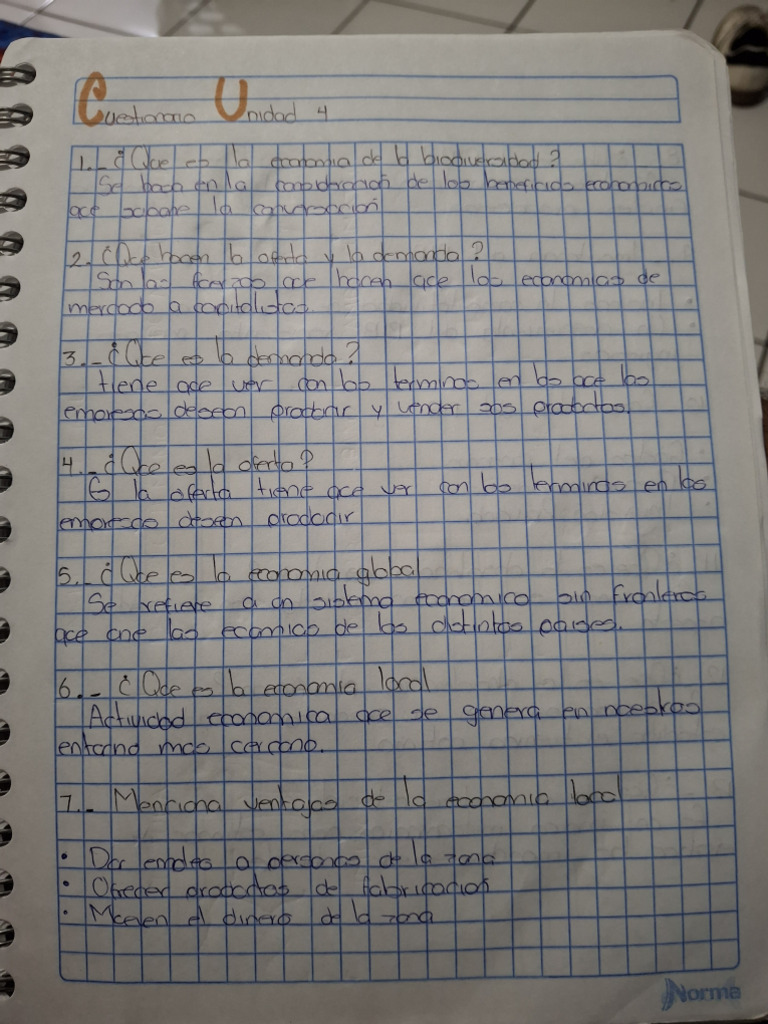 Cuestionario Unidad 4
1.- ¿Que es la economia de la biodiversidad?
Se basa en la consideración de los beneficios economicos
que la conservación
2. ¿Que hacen la oferta y la demanda?
Son las fuerzas que hacen que las economicas de
mercado a capitalistas.
3.- ¿Que es la demanda?
tiene que ver con los terminos en los que las
empresas desean producir y vender sus productos.
4.- ¿Que es la oferta?
Es la oferta tiene que ver con los terminos en las
empresas deseen producir
5.- ¿Que es la economia global
Se refiere a un sistema economico sin fronteras
que une las ecomicas de los distintos paises.
6.- ¿Que es la economia local
Actividad economica que se genera en
entorno mas cercano.
7.- Menciona ventajas de la economia local
• Dar a personas de la zona
• Ofrecer productos de fabricación
• Mueven el dinero de la zona
Norma